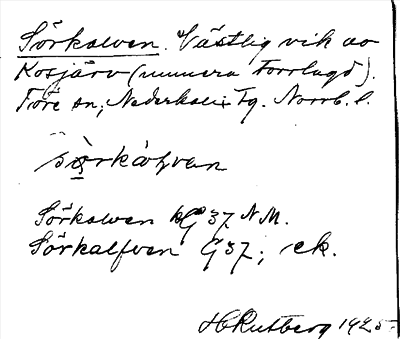 Sörkalven. Västlig vik av
Kosjärv (numera torrlagd).
Töre sn, Nederkalix tg. Norrb. l.
Sörkalven G 37 N M.
Sörkalfven G 37; ek.
H Rutberg 1925